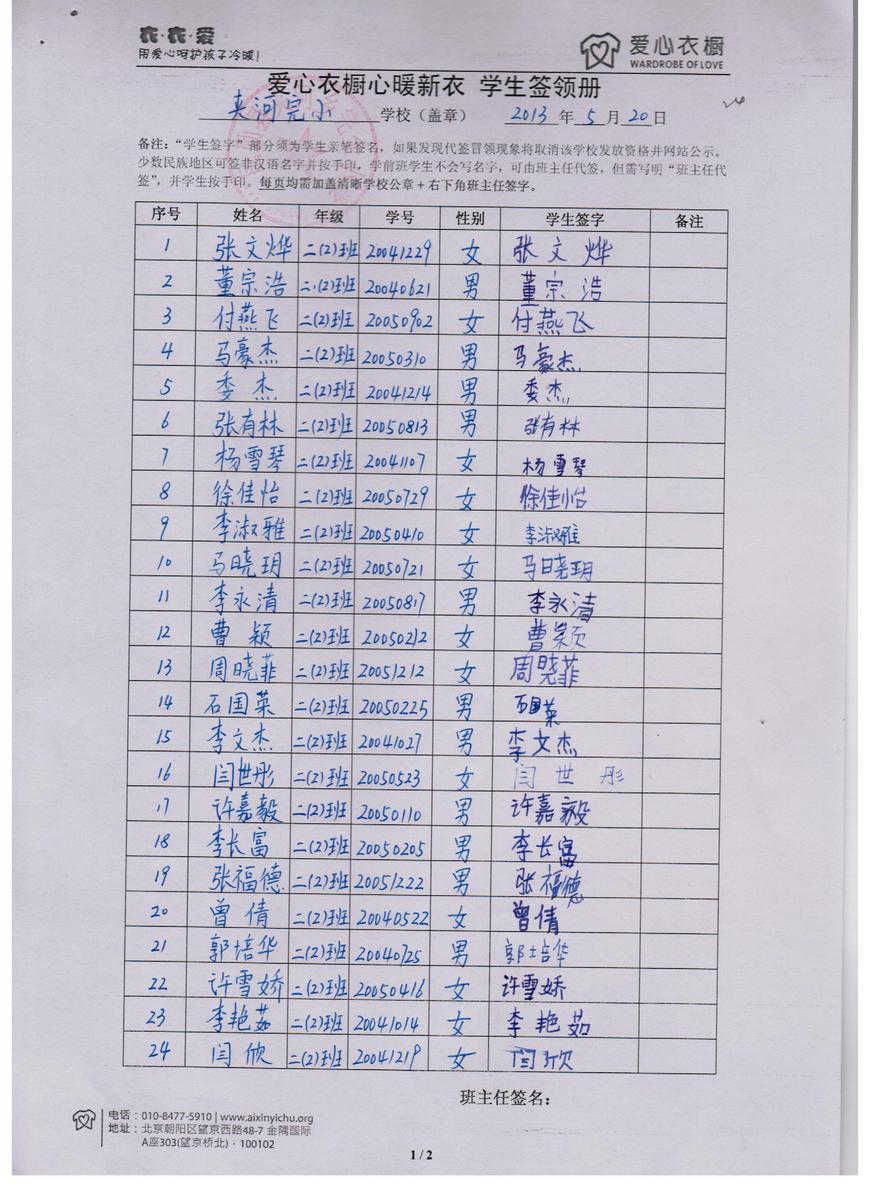 衣·衣·爱
用爱心呵护孩子冷暖!
爱心衣橱
WARDROBE OF LOVE
爱心衣橱心暖新衣 学生签领册
夹河完小 学校（盖章） 2013 年 5 月 20 日
备注：“学生签字”部分须为学生亲笔签名，如果发现代签冒领现象将取消该学校发放资格并网站公示。
少数民族地区可签非汉语名字并按手印，学前班学生不会写名字，可由班主任代签，但需写明“班主任代
签”，并学生按手印。每页均需加盖清晰学校公章+右下角班主任签字。
序号 姓名 年级 学号 性别 学生签字 备注
1 张文烨 二(2)班 20041229 女 张文烨
2 董宗浩 二(2)班 20040621 男 董宗浩
3 付燕飞 二(2)班 20050902 女 付燕飞
4 马豪杰 二(2)班 20050310 男 马豪杰
5 委杰 二(2)班 20041214 男 委杰
6 张有林 二(2)班 20050813 男 张有林
7 杨雪琴 二(2)班 20041107 女 杨雪琴
8 徐佳怡 二(2)班 20050729 女 徐佳怡
9 李淑雅 二(2)班 20050410 女 李淑雅
10 马晓玥 二(2)班 20050721 女 马晓玥
11 李永清 二(2)班 20050817 男 李永清
12 曹颖 二(2)班 20050212 女 曹颖
13 周晓菲 二(2)班 20051212 女 周晓菲
14 石国菜 二(2)班 20050225 男 石国菜
15 李文杰 二(2)班 20041027 男 李文杰
16 闫世彤 二(2)班 20050523 女 闫世彤
17 许嘉毅 二(2)班 20050110 男 许嘉毅
18 李长富 二(2)班 20050205 男 李长富
19 张福德 二(2)班 20051222 男 张福德
20 曾倩 二(2)班 20040522 女 曾倩
21 郭培华 二(2)班 20040725 男 郭培华
22 许雪娇 二(2)班 20050416 女 许雪娇
23 李艳茹 二(2)班 20041014 女 李艳茹
24 闫欣 二(2)班 20041219 女 闫欣
班主任签名：
电话：010-8477-5910 | www.aixinyichu.org
地址：北京朝阳区望京西路48-7 金隅国际
A座303(望京桥北)·100102
1 / 2